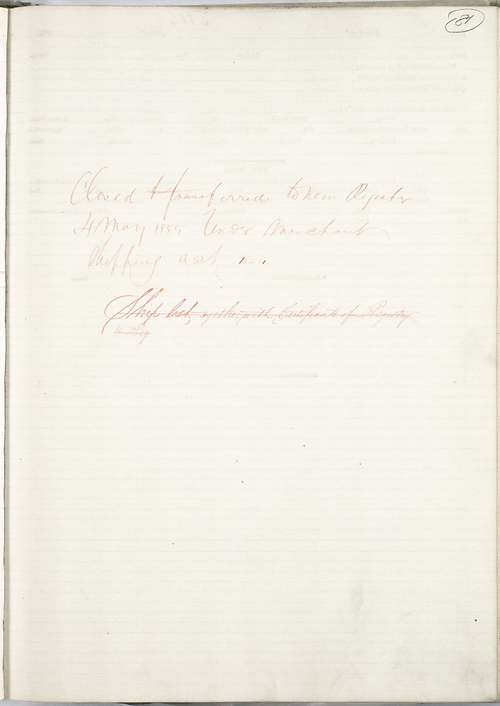 181
Closed & transferred to new Register
4 May 1855 Under Merchant
Shipping Act
Ship lost, together with Certificate of Registry